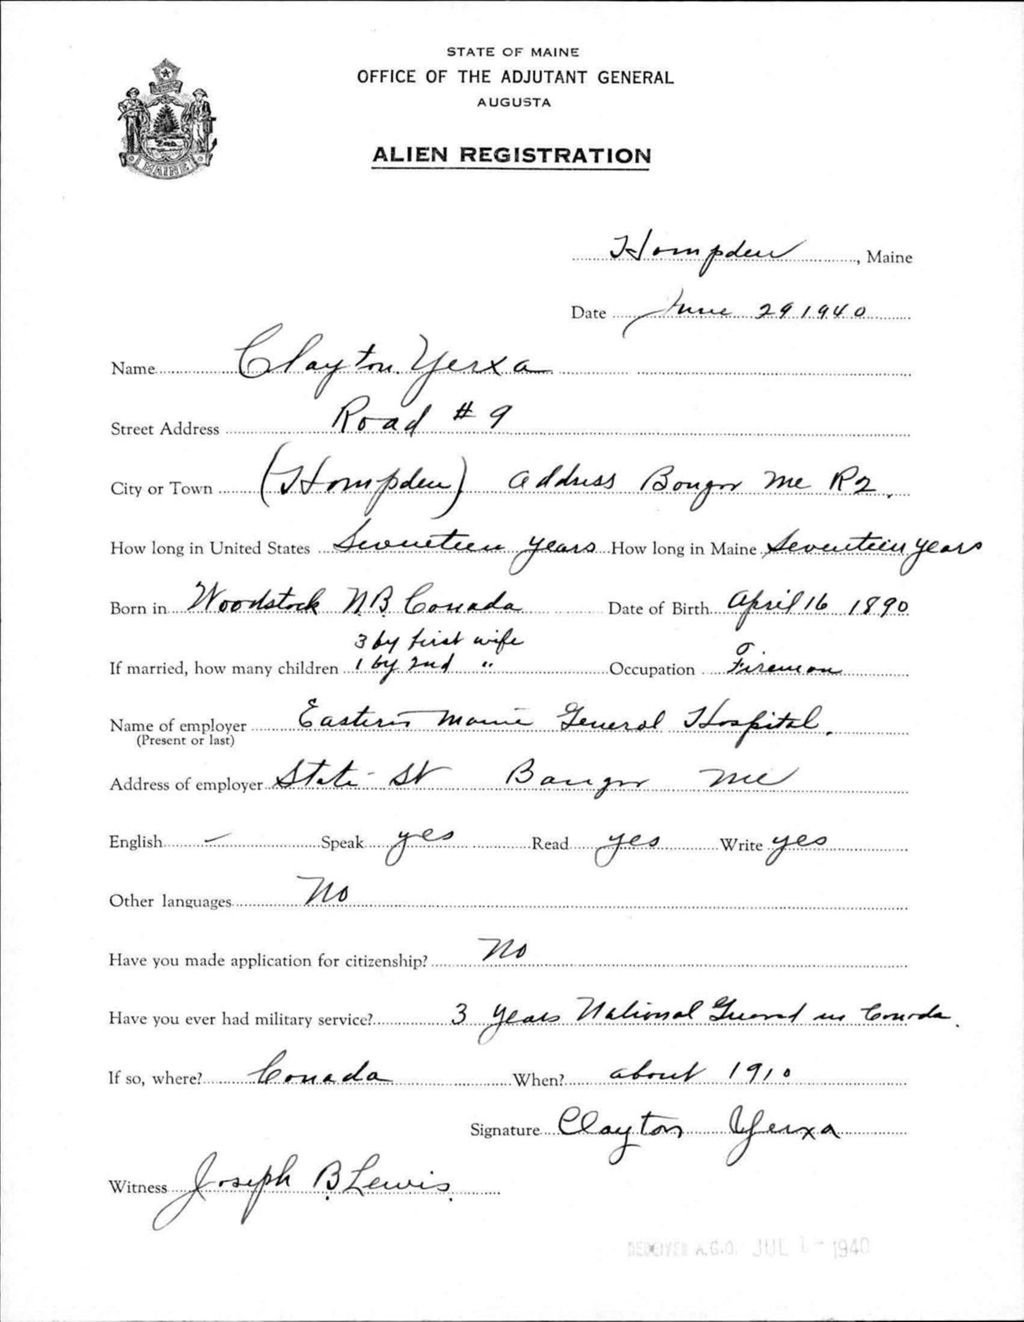 STATE OF MAINE
OFFICE OF THE ADJUTANT GENERAL
AUGUSTA
ALIEN REGISTRATION
MAINE
Hampden, Maine
Date June 29 1940
Name Clayton Yerxa
Street Address Road # 9
City or Town (Hampden) Address Bangor Me R2.
How long in United States Seventeen years How long in Maine Seventeen years
Born in Woodstock N B Canada Date of Birth April 16 1890
3 by first wife
If married, how many children 1 by 2nd " Occupation Fireman
Name of employer Eastern Maine General Hospital.
(Present or last)
Address of employer State St Bangor Me
English – Speak yes Read yes Write yes
Other languages No
Have you made application for citizenship? No
Have you ever had military service? 3 years National Guard in Canada.
If so, where? Canada When? about 1910
Signature Clayton Yerxa
Witness Joseph B Lewis.
RECEIVED A.G.O. JUL 1 - 1940